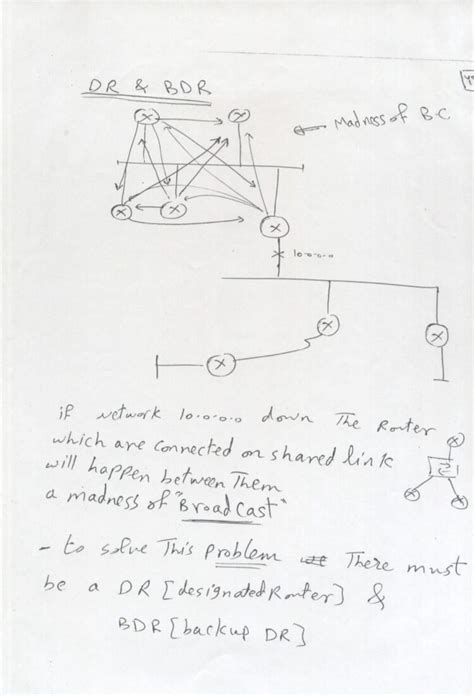 DR & BDR
← Madness of B.C
10.0.0.0
if network 10.0.0.0 down The Router
which are connected on shared link
will happen between Them
a madness of "BroadCast"
- to solve This problem There must
be a DR [designated Router] &
BDR [backup DR]